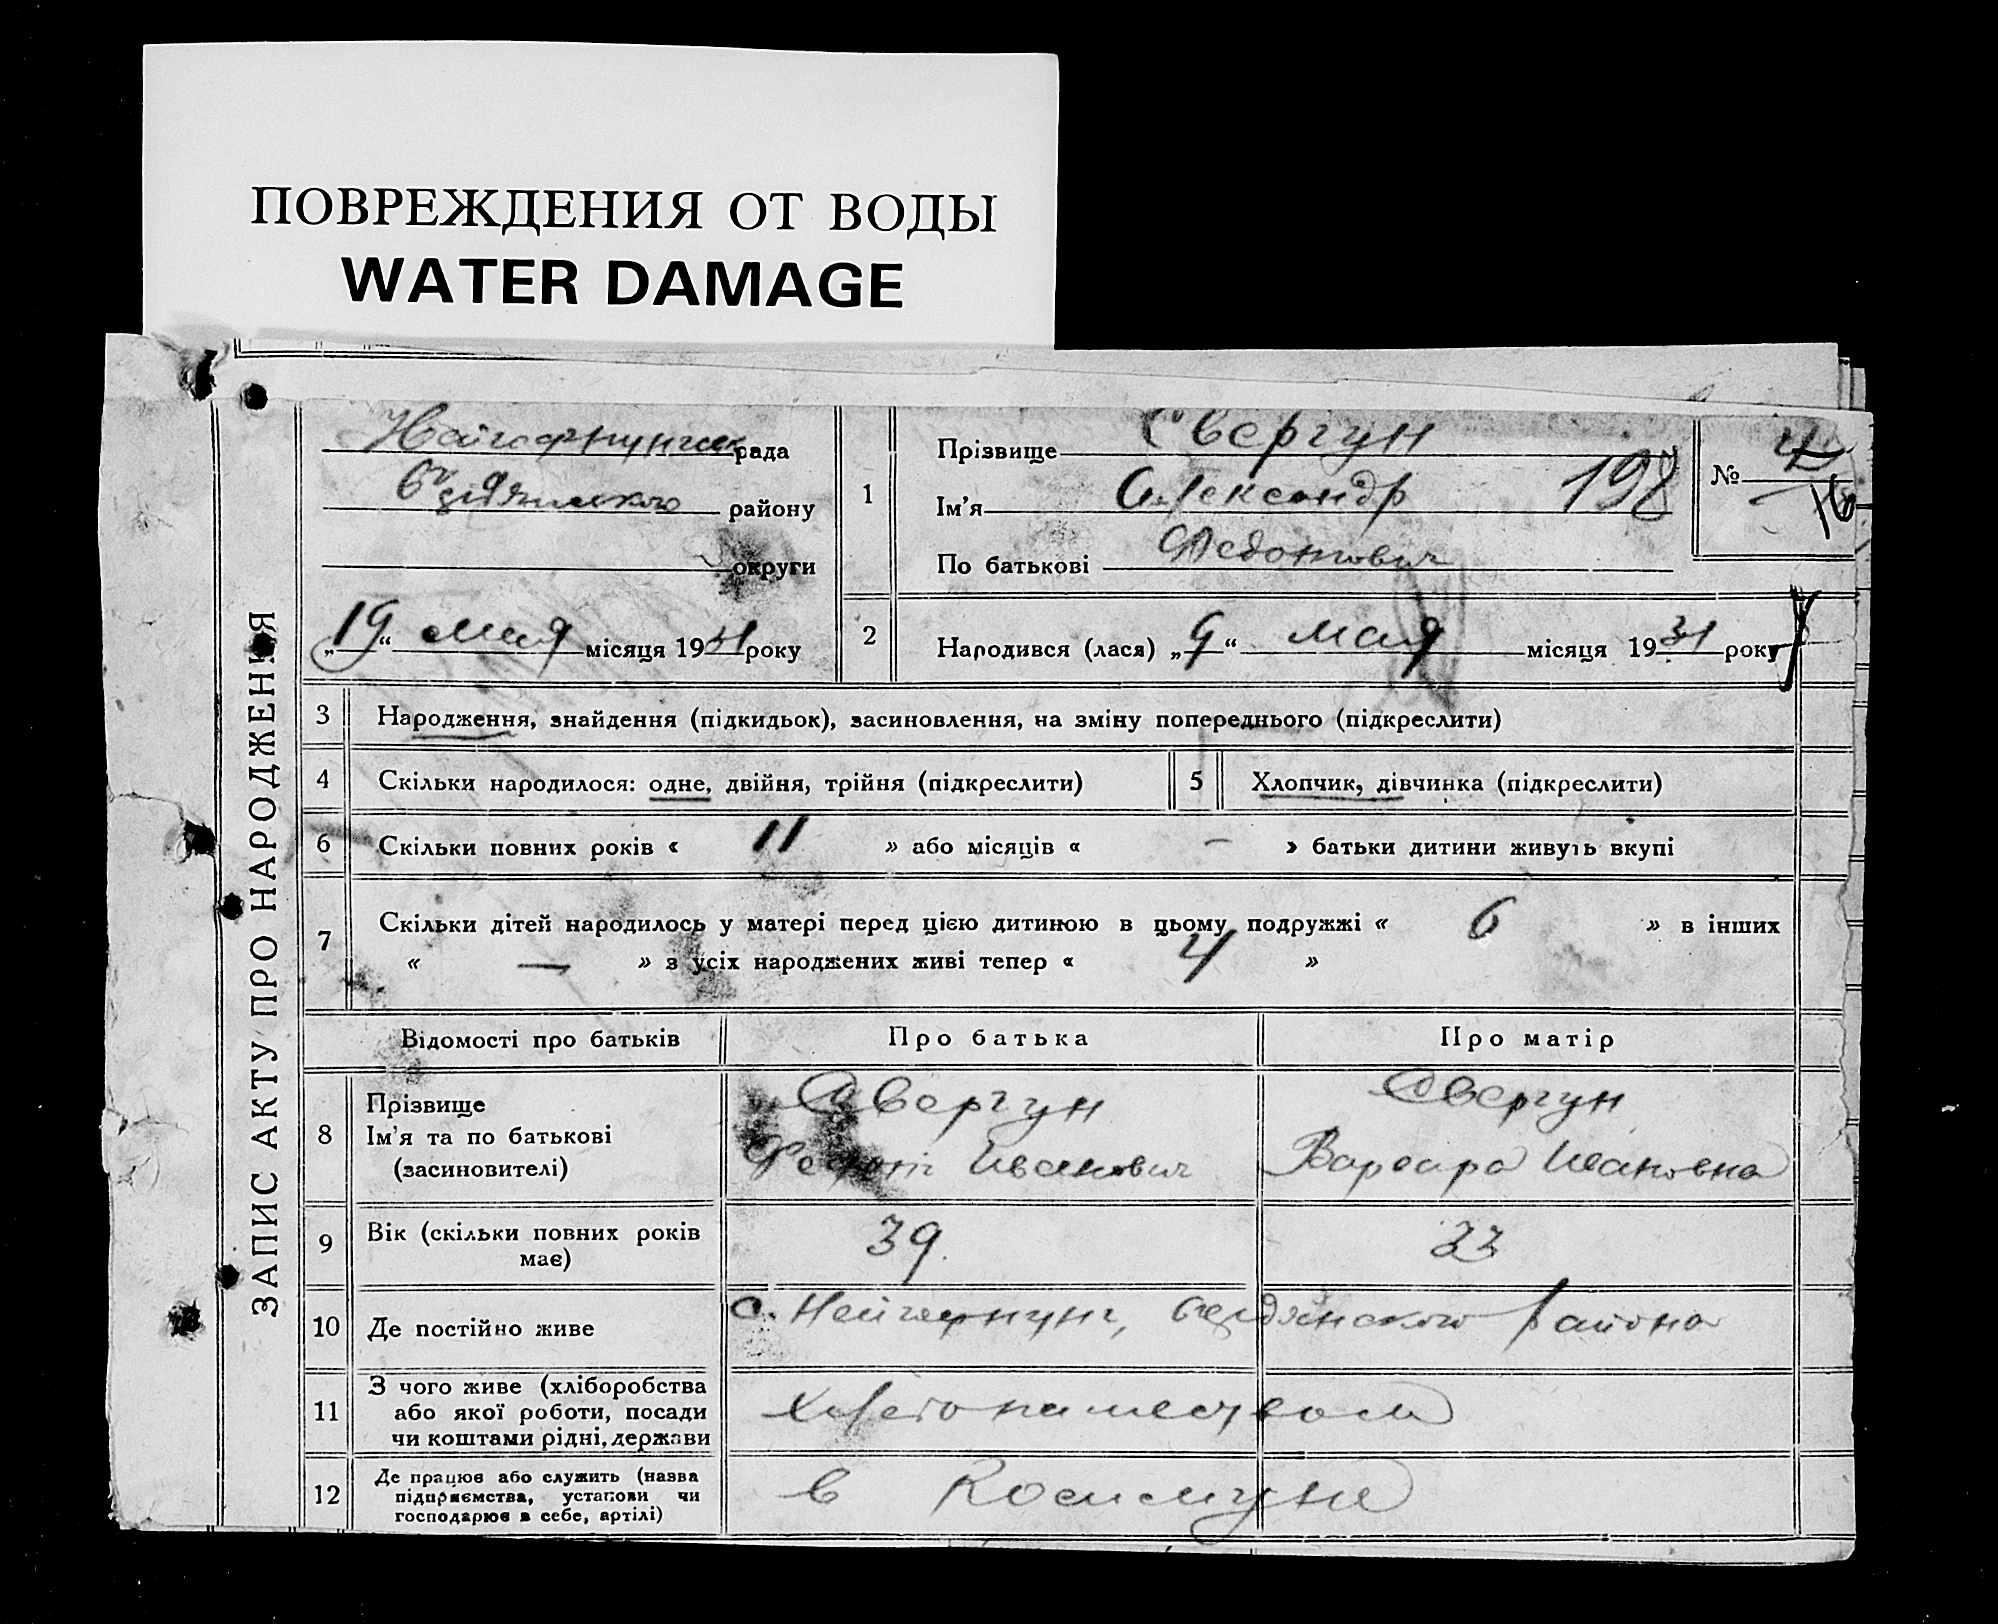 ПОВРЕЖДЕНИЯ ОТ ВОДЫ
WATER DAMAGE
ЗАПИС АКТУ ПРО НАРОДЖЕННЯ
рада
району
округи
„19“ мая місяця 1931 року
1
Прізвище Свергун
Ім'я Александр 198
По батькові Федотович
№
2
Народився (лася) „9“ мая місяця 1931 року
3 Народження, знайдення (підкидьок), засиновлення, на зміну попереднього (підкреслити)
4 Скільки народилося: одне, двійня, трійня (підкреслити)
5 Хлопчик, дівчинка (підкреслити)
6 Скільки повних років « 11 » або місяців « — » батьки дитини живуть вкупі
7 Скільки дітей народилось у матері перед цією дитиною в цьому подружжі « 6 » в інших
« — » з усіх народжених живі тепер « 4 »
Відомості про батьків Про батька Про матір
8 Прізвище Свергун Свергун
Ім'я та по батькові Иванович Варвара Ивановна
(засиновителі)
9 Вік (скільки повних років має) 39 33
10 Де постійно живе с. района
11 З чого живе (хліборобства
або якої роботи, посади
чи коштами рідні, держави
12 Де працює або служить (назва
підприємства, установи чи
господарює в себе, артілі)
в Коммуне